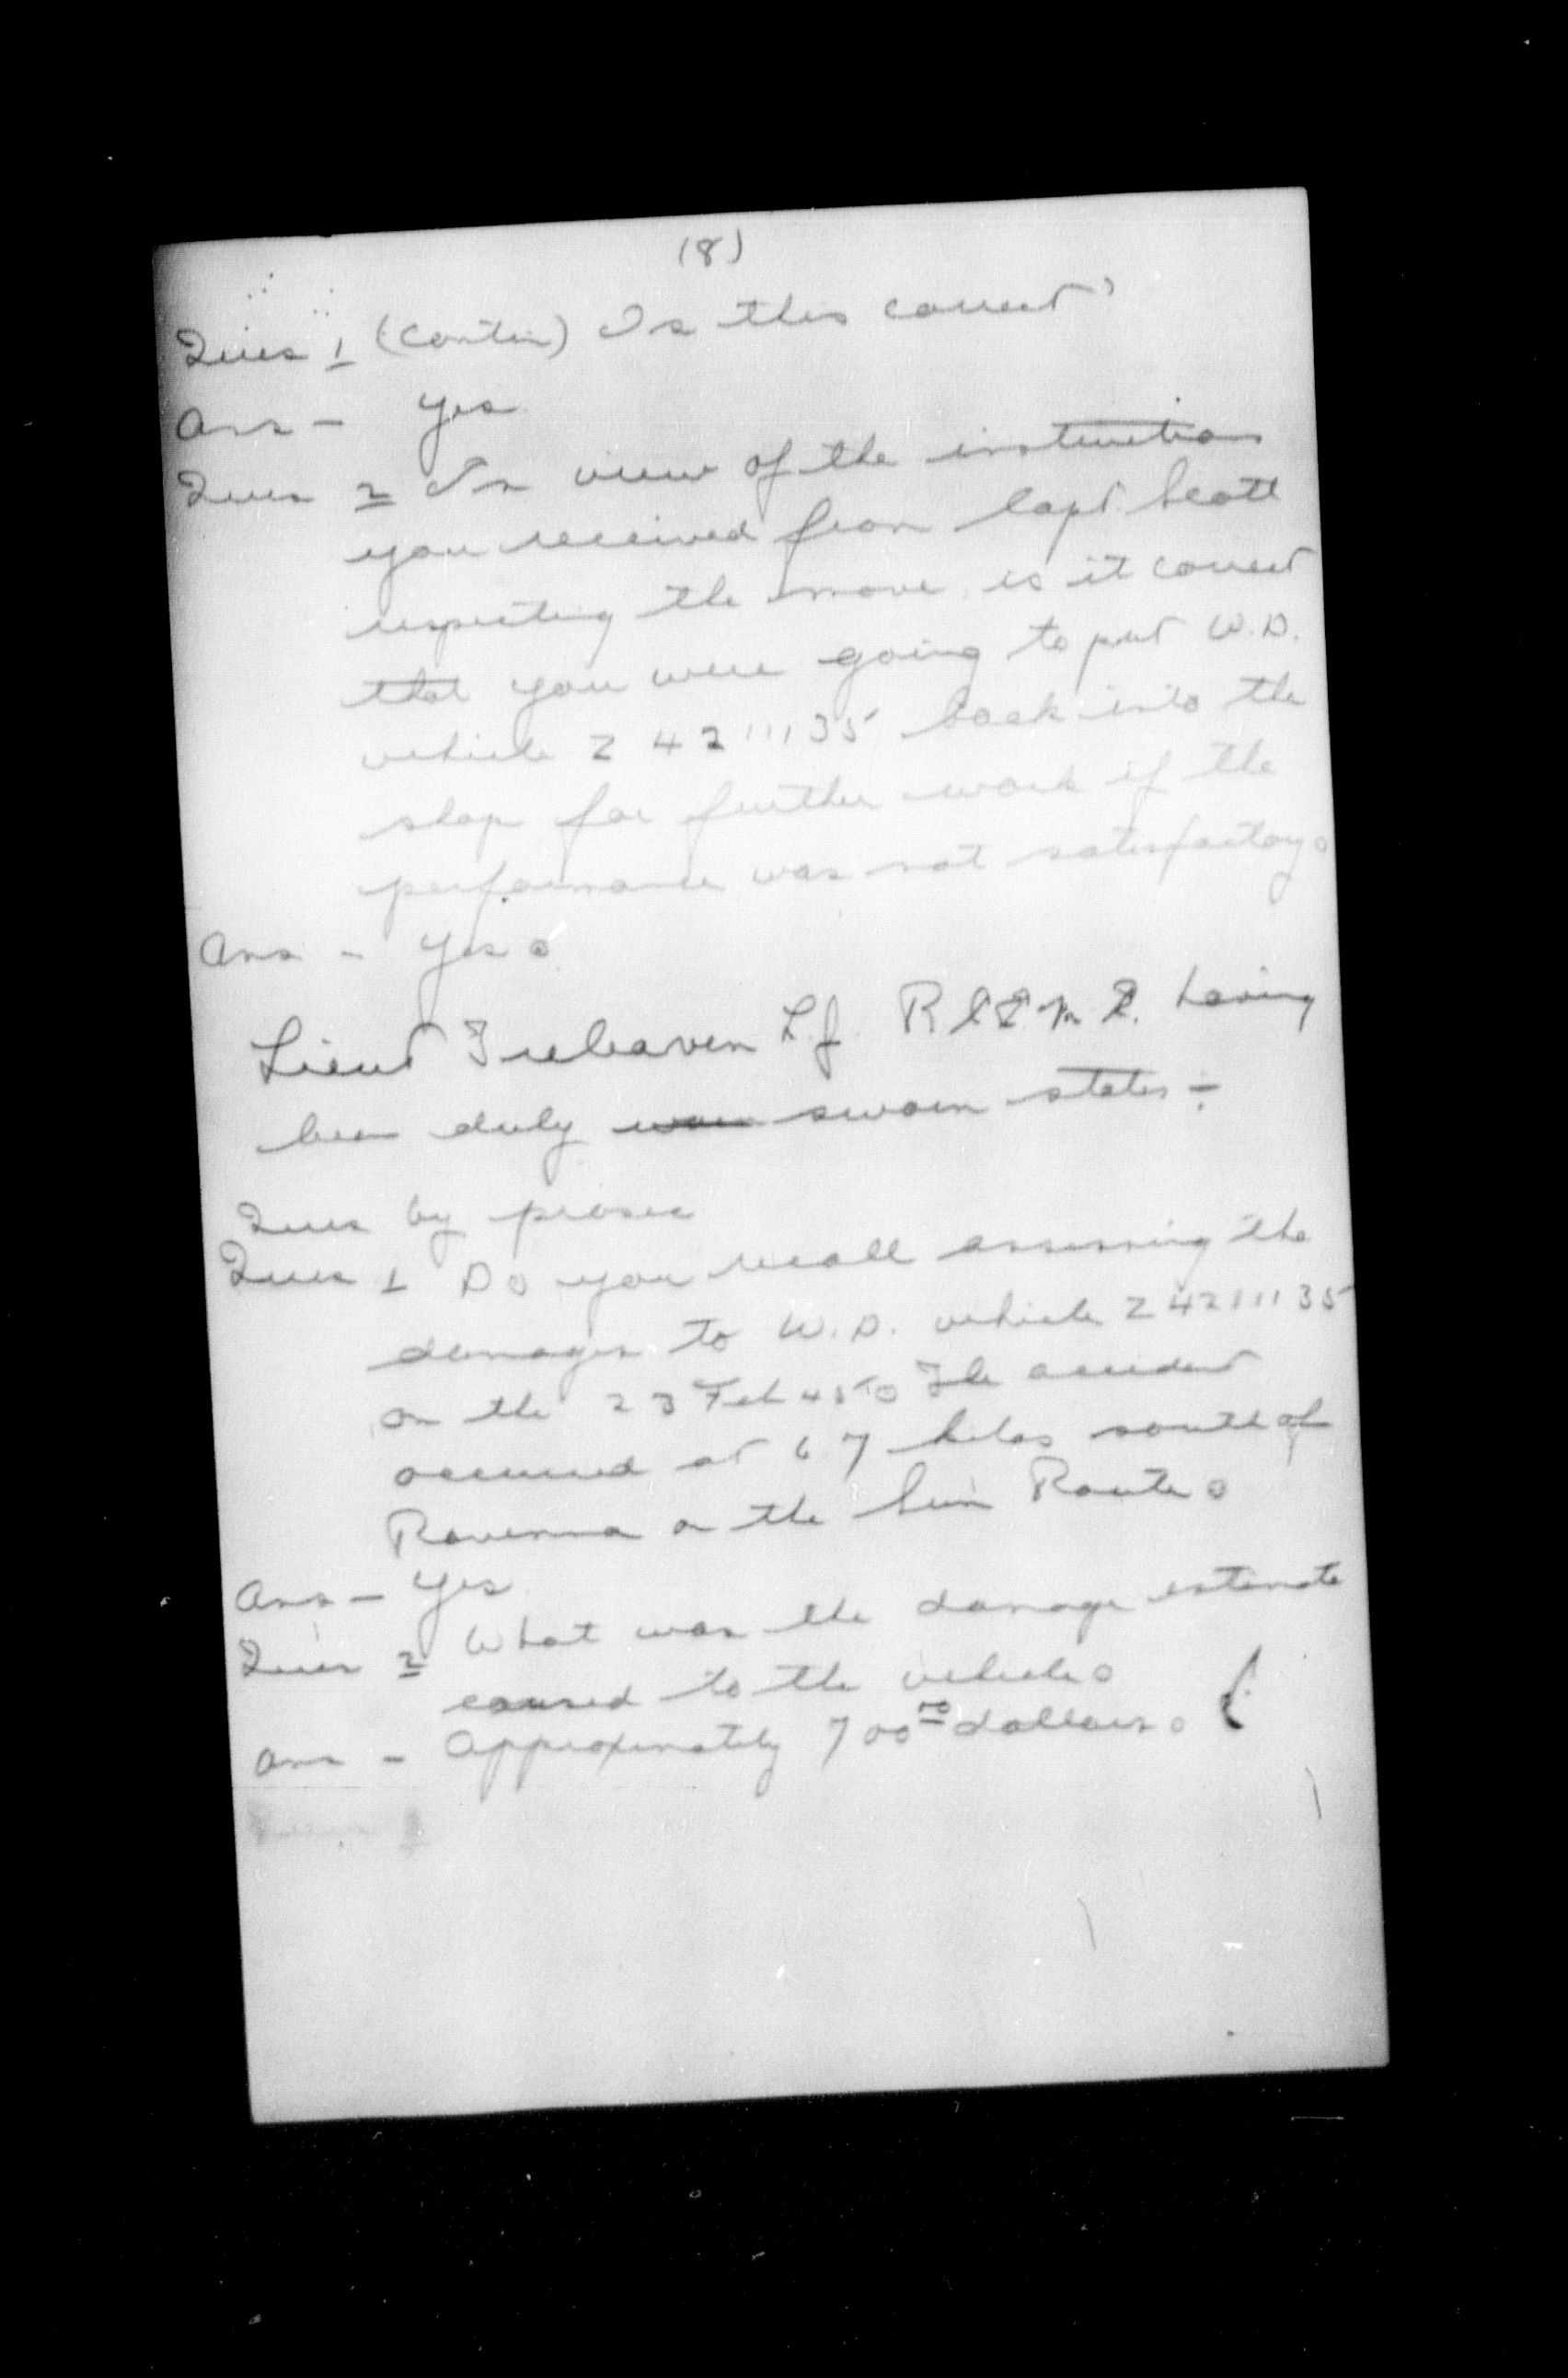 (8)
Ques 1 (contin) Is this correct?
Ans - Yes
Ques 2 In view of the instructions
you received from Capt. Scott
respecting the move, is it correct
that you were going to put W.D.
vehicle Z 4211135 back into the
shop for further work if the
performance was not satisfactory.
Ans - Yes.
Lieut Treleaven L.J. R C E M E. having
been duly sworn states:-
Ques by prosec
Ques 1 Do you recall assessing the
damages to W.D. vehicle Z 4211135
on the 23 Feb 45. The accident
occurred at 6.7 kilos south of
Ravenna on the Sun Route.
Ans - Yes
Ques 2 What was the damage estimate
caused to the vehicle.
Ans - Approximately 700 00 dollars.